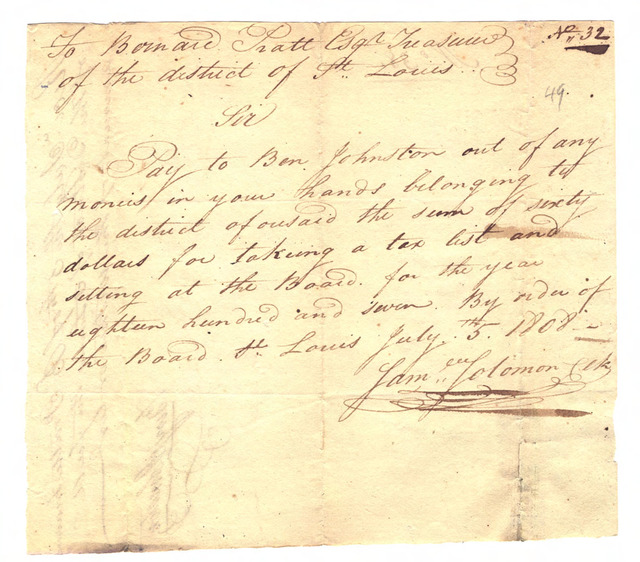 No. 32
To Bernard Pratt Esqr. Treasurer
of the district of St. Louis
49.
Sir
Pay to Ben Johnston out of any
monies in your hands belonging to
the district afousaid the sum of sixty
dollars for takeing a tax list and
setting at the Board. for the year
eighteen hundred and seven. By order of
the Board. St. Louis July. 5th 1808
Samuel Solomon Clk